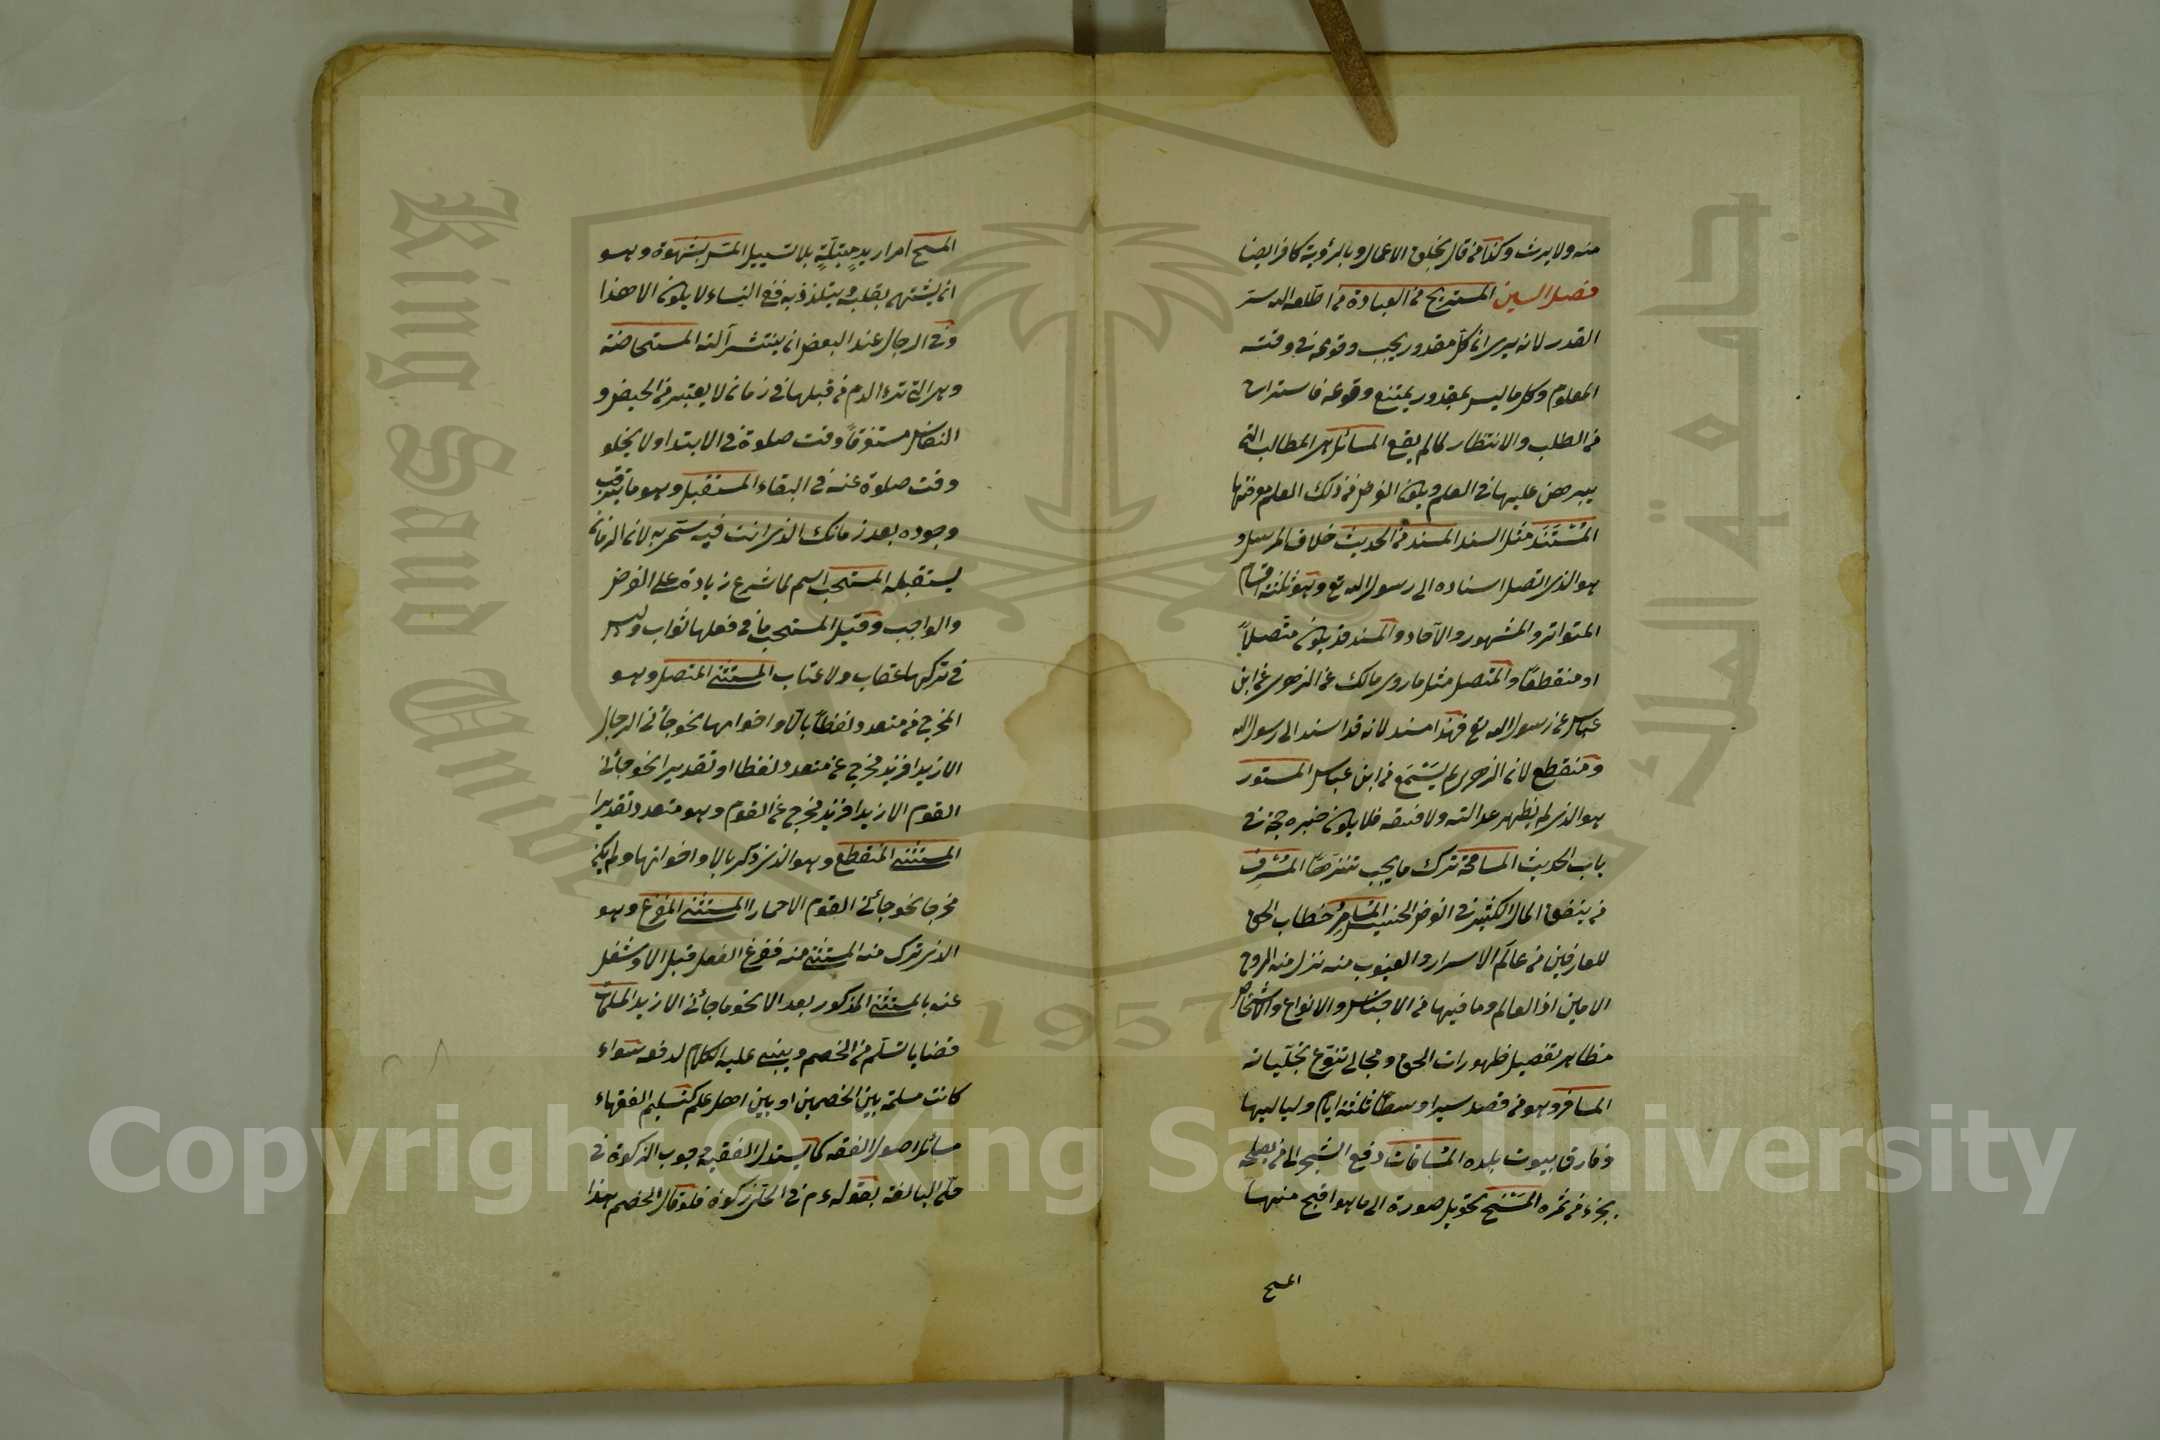 منه ولا يرث وكذا من قال بخلق الاعمال وبالرؤية كافر ايضا
فصل السين المستريح من العباد من اطلعه الله سر
القدر لانه يرى ان كل مقدور يجب وقوعه في وقته
المعلوم وكل ما ليس بمقدور يمتنع وقوعه فاستراح
من الطلب والانتظار لما لم يقع المسائل هي المطالب التي
يبرهن عليها في العلم ويكون الغرض من ذلك العلم معرفتها
المُسْتَنَد مثل السند المسند من الحديث خلاف المرسل و
هو الذي اتصل اسناده الى رسول الله صع وهو ثلثة اقسام
المتواتر والمشهور والآحاد والمسند قد يكون متصلاً
او منقطعا والمتصل مثل ما روى مالك عن الزهري عن ابن
عباس عن رسول الله صع فهذا مسند لانه قد اسند الى رسول الله
ومنقطع لان الزهري لم يَسْمَع من ابن عباس المستور
هو الذي لم يظهر عدالته ولا فسقه فلا يكون خبره حجة في
باب الحديث المسامحة ترك ما يجب تنزها المُسْرِف
من ينفق المال الكثير في الغرض الخسيس المُسَامِرُ خطاب الحق
للعارفين من عالم الاسرار والغيوب منه نزل به الروح
الامين اذ العالم وما فيها من الاجناس والانواع والاشخاص
مظاهر تفصيل ظهورات الحق ومجالي تنوع تجلياته
المسافر وهو من قصد سيرا وسطا ثلثة ايام ولياليها
وفارق بيوت بلده المساقات دفع الشجر الى من يصلحه
بجزء من ثمره المَسْخ تحويل صورة الى ما هو اقبح منها
المسح
المسح امرار يدٍ مبتلّةٍ بلا تسييل المس بشهوة وهو
ان يشتهي بقلبه ويتلذذ به ففي النساء لا يكون الا هذا
وفي الرجال عند البعض ان ينتشر آلته المستحاضة
وهي التي ترى الدم من قبلها في زمان لا يعتبر من الحيض و
النفاس مستغرقاً وقت صلوة في الابتدا ولا يخلو
وقت صلوة عنه في البقاء المستقبل وهو ما يترقب
وجوده بعد زمانك الذي انت فيه سمى به لان الزمان
يستقبله المستحب اسم لما شرع زيادة على الفرض
والواجب وقيل المستحب ما في فعلها ثواب وليس
في تركها عقاب ولا عتاب المستثنى المتصل وهو
المخرج من متعدد لفظاً بالا واخواتها نحو جاءني الرجال
الا زيدا فزيد مخرج عن متعدد لفظا او تقديرا نحو جاءني
القوم الا زيدا فزيد مخرج عن القوم وهو متعدد تقديرا
المستثنى المنقطع وهو الذي ذكر بالا واخواتها ولم يكن
مخرجا نحو جاءني القوم الا حمارا المستثنى المفرغ وهو
الذي ترك منه المستثنى منه ففرغ الفعل قبل الا وشغل
عنه بالمستثنى المذكور بعد الا نحو ما جاءني الا زيد المسلمات
قضايا تسلم من الخصم ويبنى عليه الكلام لدفعه سواء
كانت مسلمة بين الخصمين او بين اهل علم كتسليم الفقهاء
مسائل اصول الفقه كما يستدل الفقيه وجوب الزكوة في
حلي البالغة بقوله ءم في الحلي زكوة فلو قال الخصم هذا
King Saud Unive
جامعة الملك
1957
Copyright © King Saud University